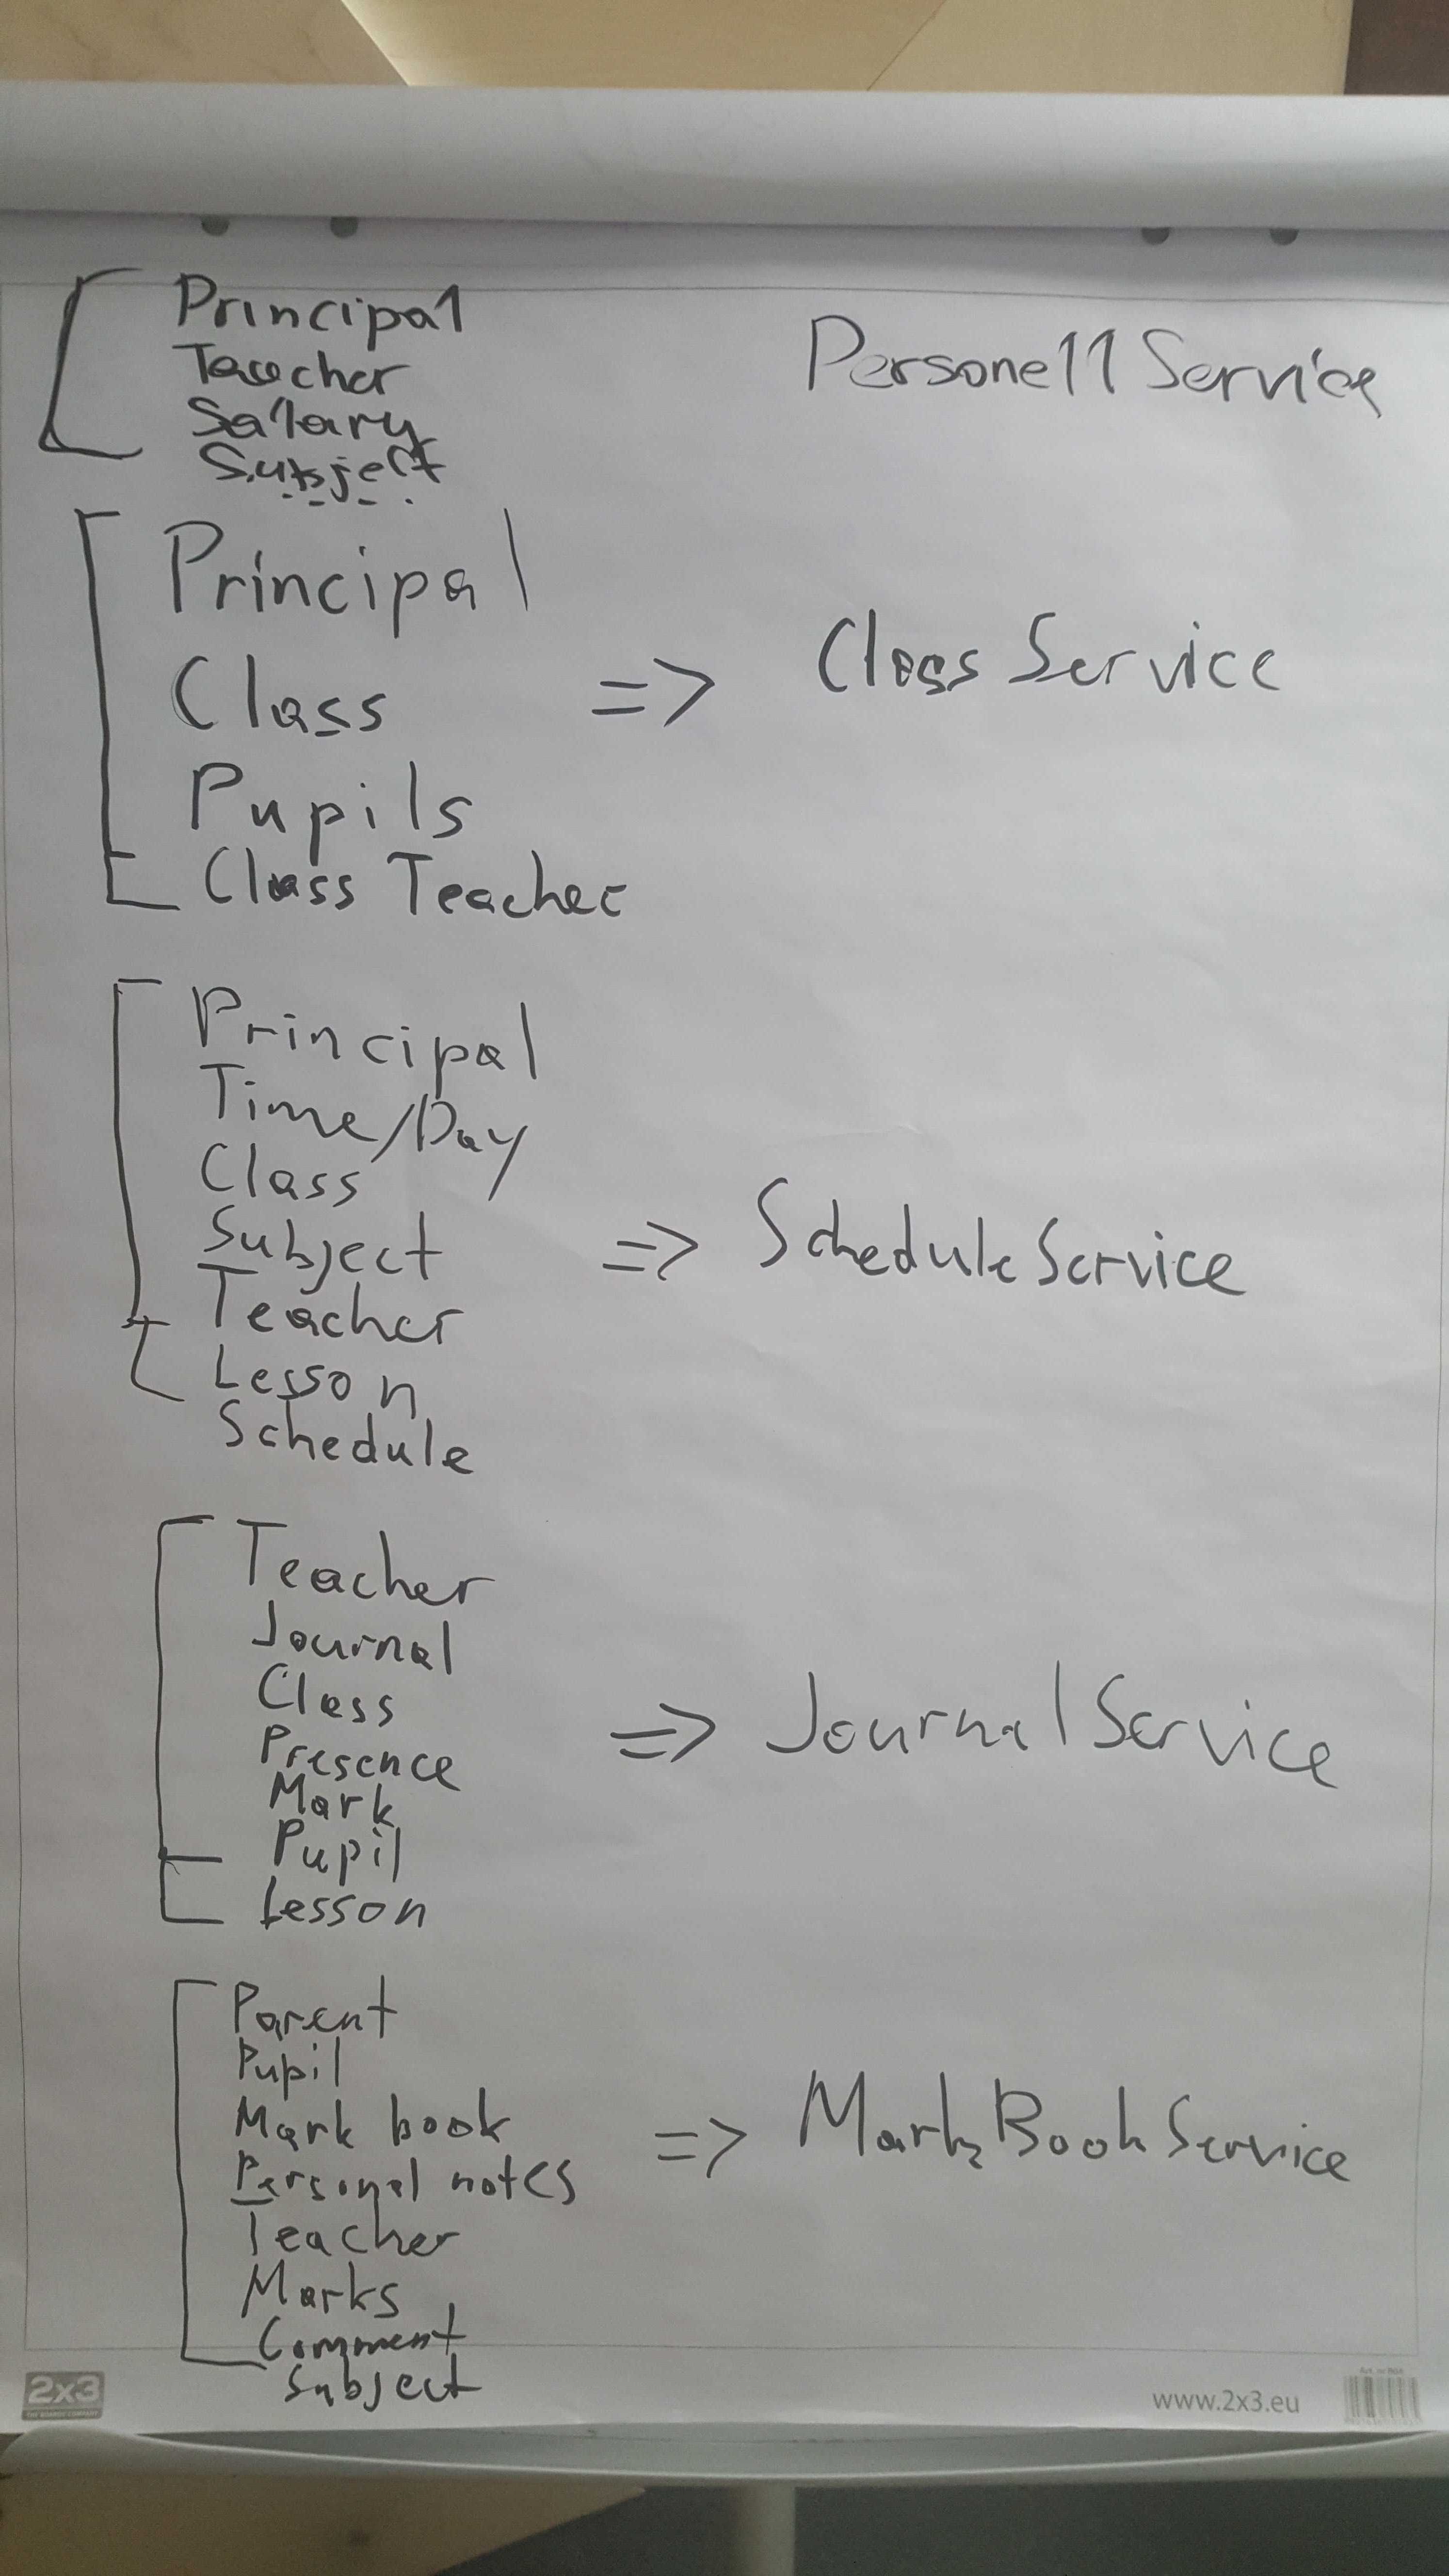 Principal
Teacher
Salary
Subject
Personell Service
Principal
Class
Pupils
Class Teacher
=> Class Service
Principal
Time/Day
Class
Subject
Teacher
Lesson
Schedule
=> ScheduleService
Teacher
Journal
Class
Presence
Mark
Pupil
Lesson
=> JournalService
Parent
Pupil
Mark book
Personal notes
Teacher
Marks
Comment
Subject
=> MarkBookService
2x3
www.2x3.eu